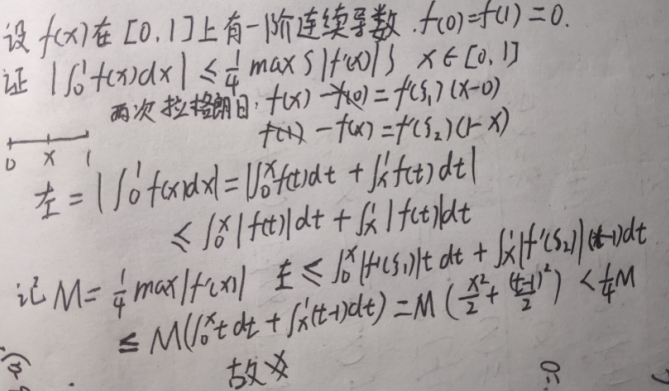 设 f(x)在 [0,1]上有一阶连续导数. f(0)=f(1)=0.
证 |∫₀¹f(x)dx| ≤ 1/4 max{|f'(x)|} x∈[0,1]
两次拉格朗日. f(x)-f(0)=f'(ξ₁)(x-0)
f(1)-f(x)=f'(ξ₂)(1-x)
0 x 1
左=|∫₀¹f(x)dx|=|∫₀ˣf(t)dt+∫ₓ¹f(t)dt|
≤∫₀ˣ|f(t)|dt+∫ₓ¹|f(t)|dt
记M=1/4 max|f'(x)| 左≤∫₀ˣ|f'(ξ₁)|t dt+∫ₓ¹|f'(ξ₂)|(t-1)dt
≤M(∫₀ˣt dt+∫ₓ¹(t-1)dt)=M(x²/2+(t-1)²/2)<1/4M